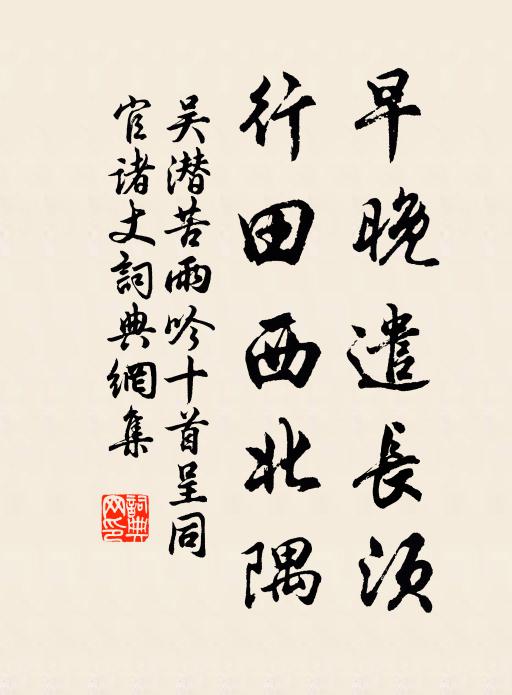 早晚遣長須
行田西北隅
吴潜苦雨吟十首呈同
官诸丈詞典網集
詞典
网印